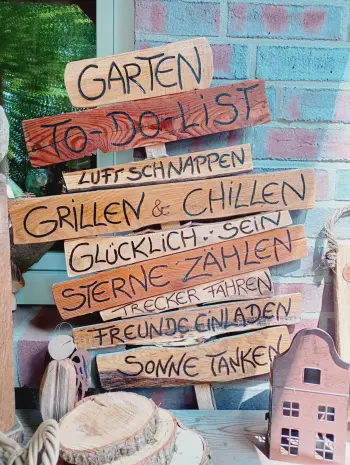 GARTEN
TO-DO LIST
LUFT SCHNAPPEN
GRILLEN & CHILLEN
GLÜCKLICH SEIN
STERNE ZÄHLEN
TRECKER FAHREN
FREUNDE EINLADEN
SONNE TANKEN